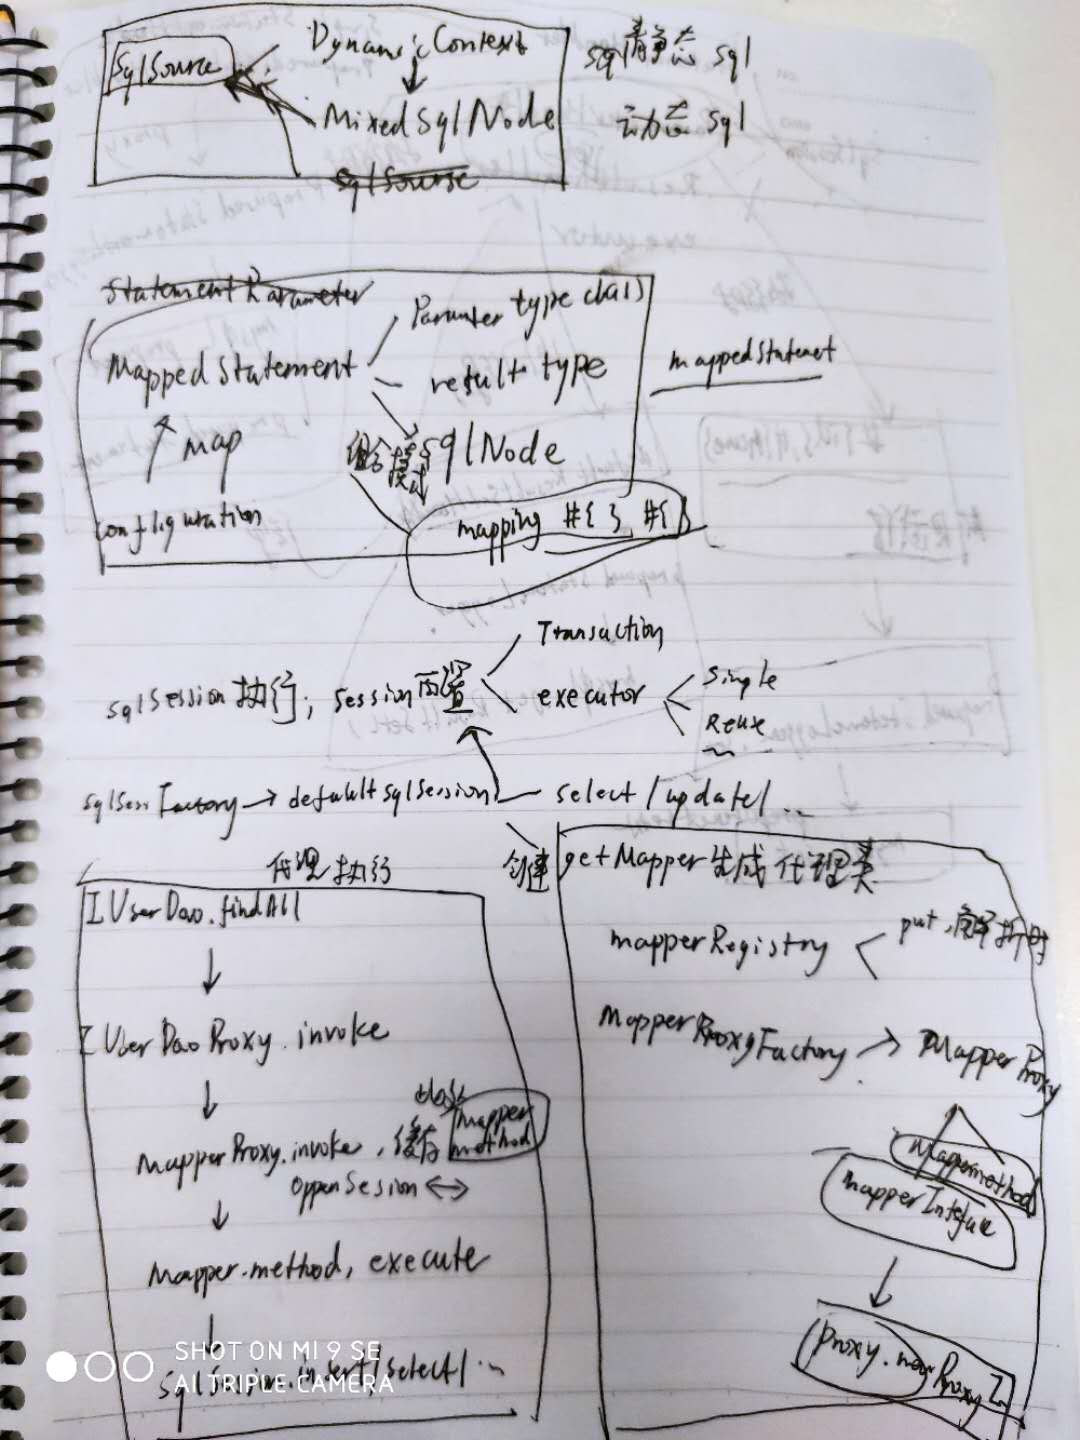 SqlSource
DynamicContext
MixedSqlNode
SqlSource
sql静态 sql
动态 sql
Statement Parameter
MappedStatement
type class
result type
sqlNode
组合模式
map
Configuration
mapping #{ } #{ }
mappedStatenet
sqlSession 执行, Session
Transaction
executor
Simple
Reuse
sqlSessFactory → defaultSqlSession
select / update / ...
代理执行
创建
getMapper 生成代理类
IUserDao.findAll
IUserDaoProxy.invoke
MapperProxy.invoke, 缓存
Mapper method
OppenSesion ↔
Mapper.method, execute
SqlSession.insert/select/...
mapperRegistry
put, 解析时
MapperProxyFactory → MapperProxy
Mappermethod
mapperInteface
proxy.newProxy
SHOT ON MI 9 SE
AI TRIPLE CAMERA